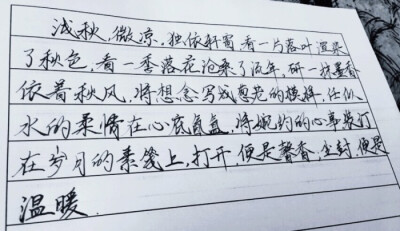 浅秋，微凉，独依轩窗，看一片落叶渲染
了秋色，看一季落花沧桑了流年，研一抹墨香
依着秋风，将想念写成意范的模样，任似
水的柔情在心底氤氲，将婉约的心事装订
在岁月的素笺上，打开，便是馨香，尘封，便是
温暖